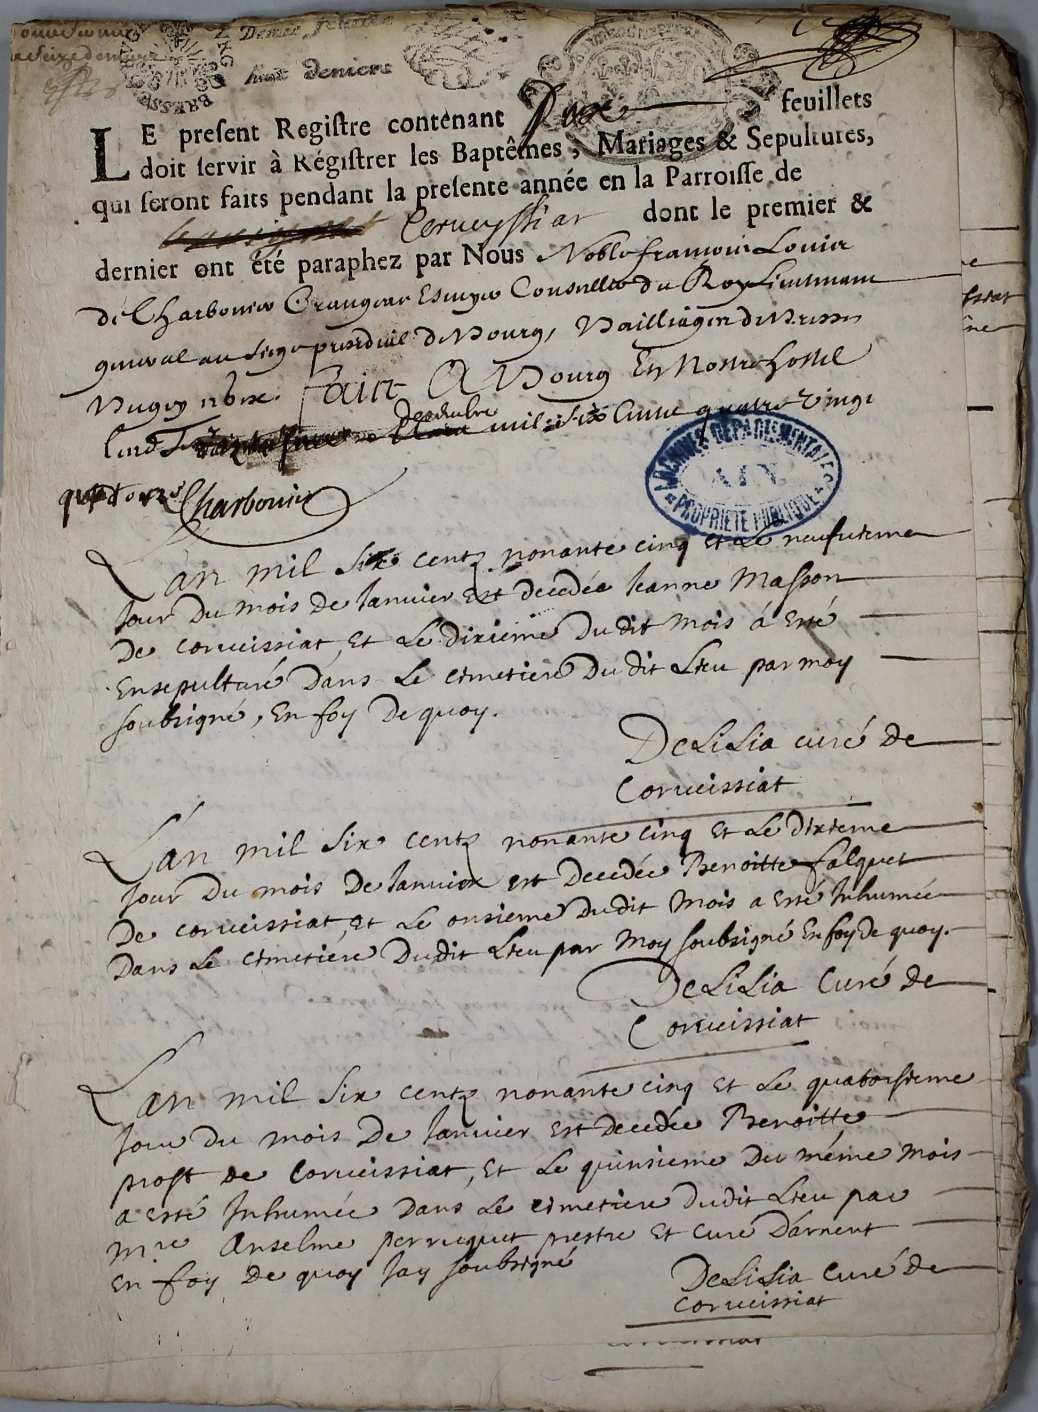 huit deniers
LE present Registre contenant Doze feuillets
doit servir à Régistrer les Baptêmes, Mariages & Sepultures,
qui seront faits pendant la presente année en la Parroisse de
Corveyssiat dont le premier &
dernier ont été paraphez par Nous Noble francois Louis
de Charbonier Crangeac Escuyer Conseiller du Roy Lieutenant
general au siege presidial de Bourg, Bailliage de Bresse
Bugey Fait A Bourg En Nostre hostel
decembre mil six Cents quatre Vingt
quatorze Charbonier
ARCHIVES DEPARTEMENTALES
AIN
PROPRIÉTÉ PUBLIQUE
L'an mil six centz nonante cinq et Le neufvieme
Jour Du mois de Janvier Est decedée Jeanne Masson
De corveissiat, Et Le dixieme Du dit mois à Esté
Ensepulturé Dans Le cimetiere Du dit Lieu par moy
soubsigné, En foy De quoy.
DeLiLia curé de
Corveissiat
L'an mil six centz nonante cinq Et Le dixieme
Jour Du mois De Janvier est Decedée Benoitte falquet
De corveissiat, et Le onsieme Du dit mois a Esté Inhumée
Dans Le cimetiére Du dit Lieu par Moy soubsigné En foy de quoy.
DeLiLia Curé de
Corveissiat
L'an mil six centz nonante cinq et Le quatorsieme
Jour Du mois De Janvier Est Decedée Benoitte
prost de Corveissiat, Et Le quinsieme Du méme mois
a Esté Inhumée Dans Le cimetiere Du dit Lieu par
mre Anselme perruquet prestre Et curé D'arnent
En foy De quoy Jay soubsigné
DeLiLia Curé de
Corveissiat